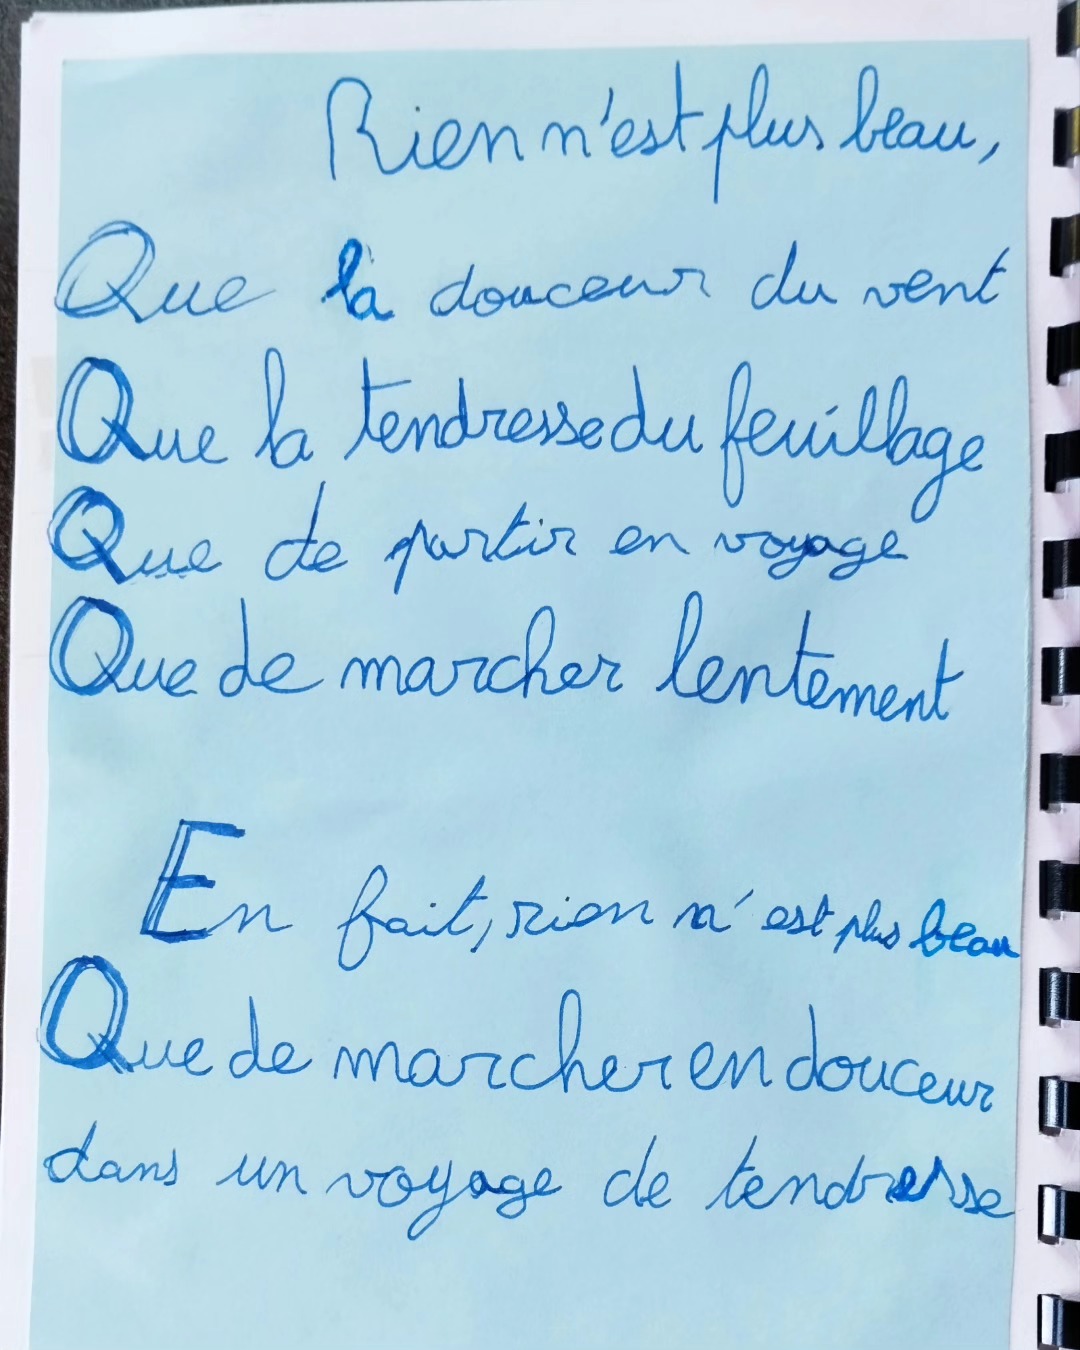 Rien n'est plus beau,
Que la douceur du vent
Que la tendresse du feuillage
Que de partir en voyage
Que de marcher lentement
En fait, rien n'est plus beau
Que de marcher en douceur
dans un voyage de tendresse